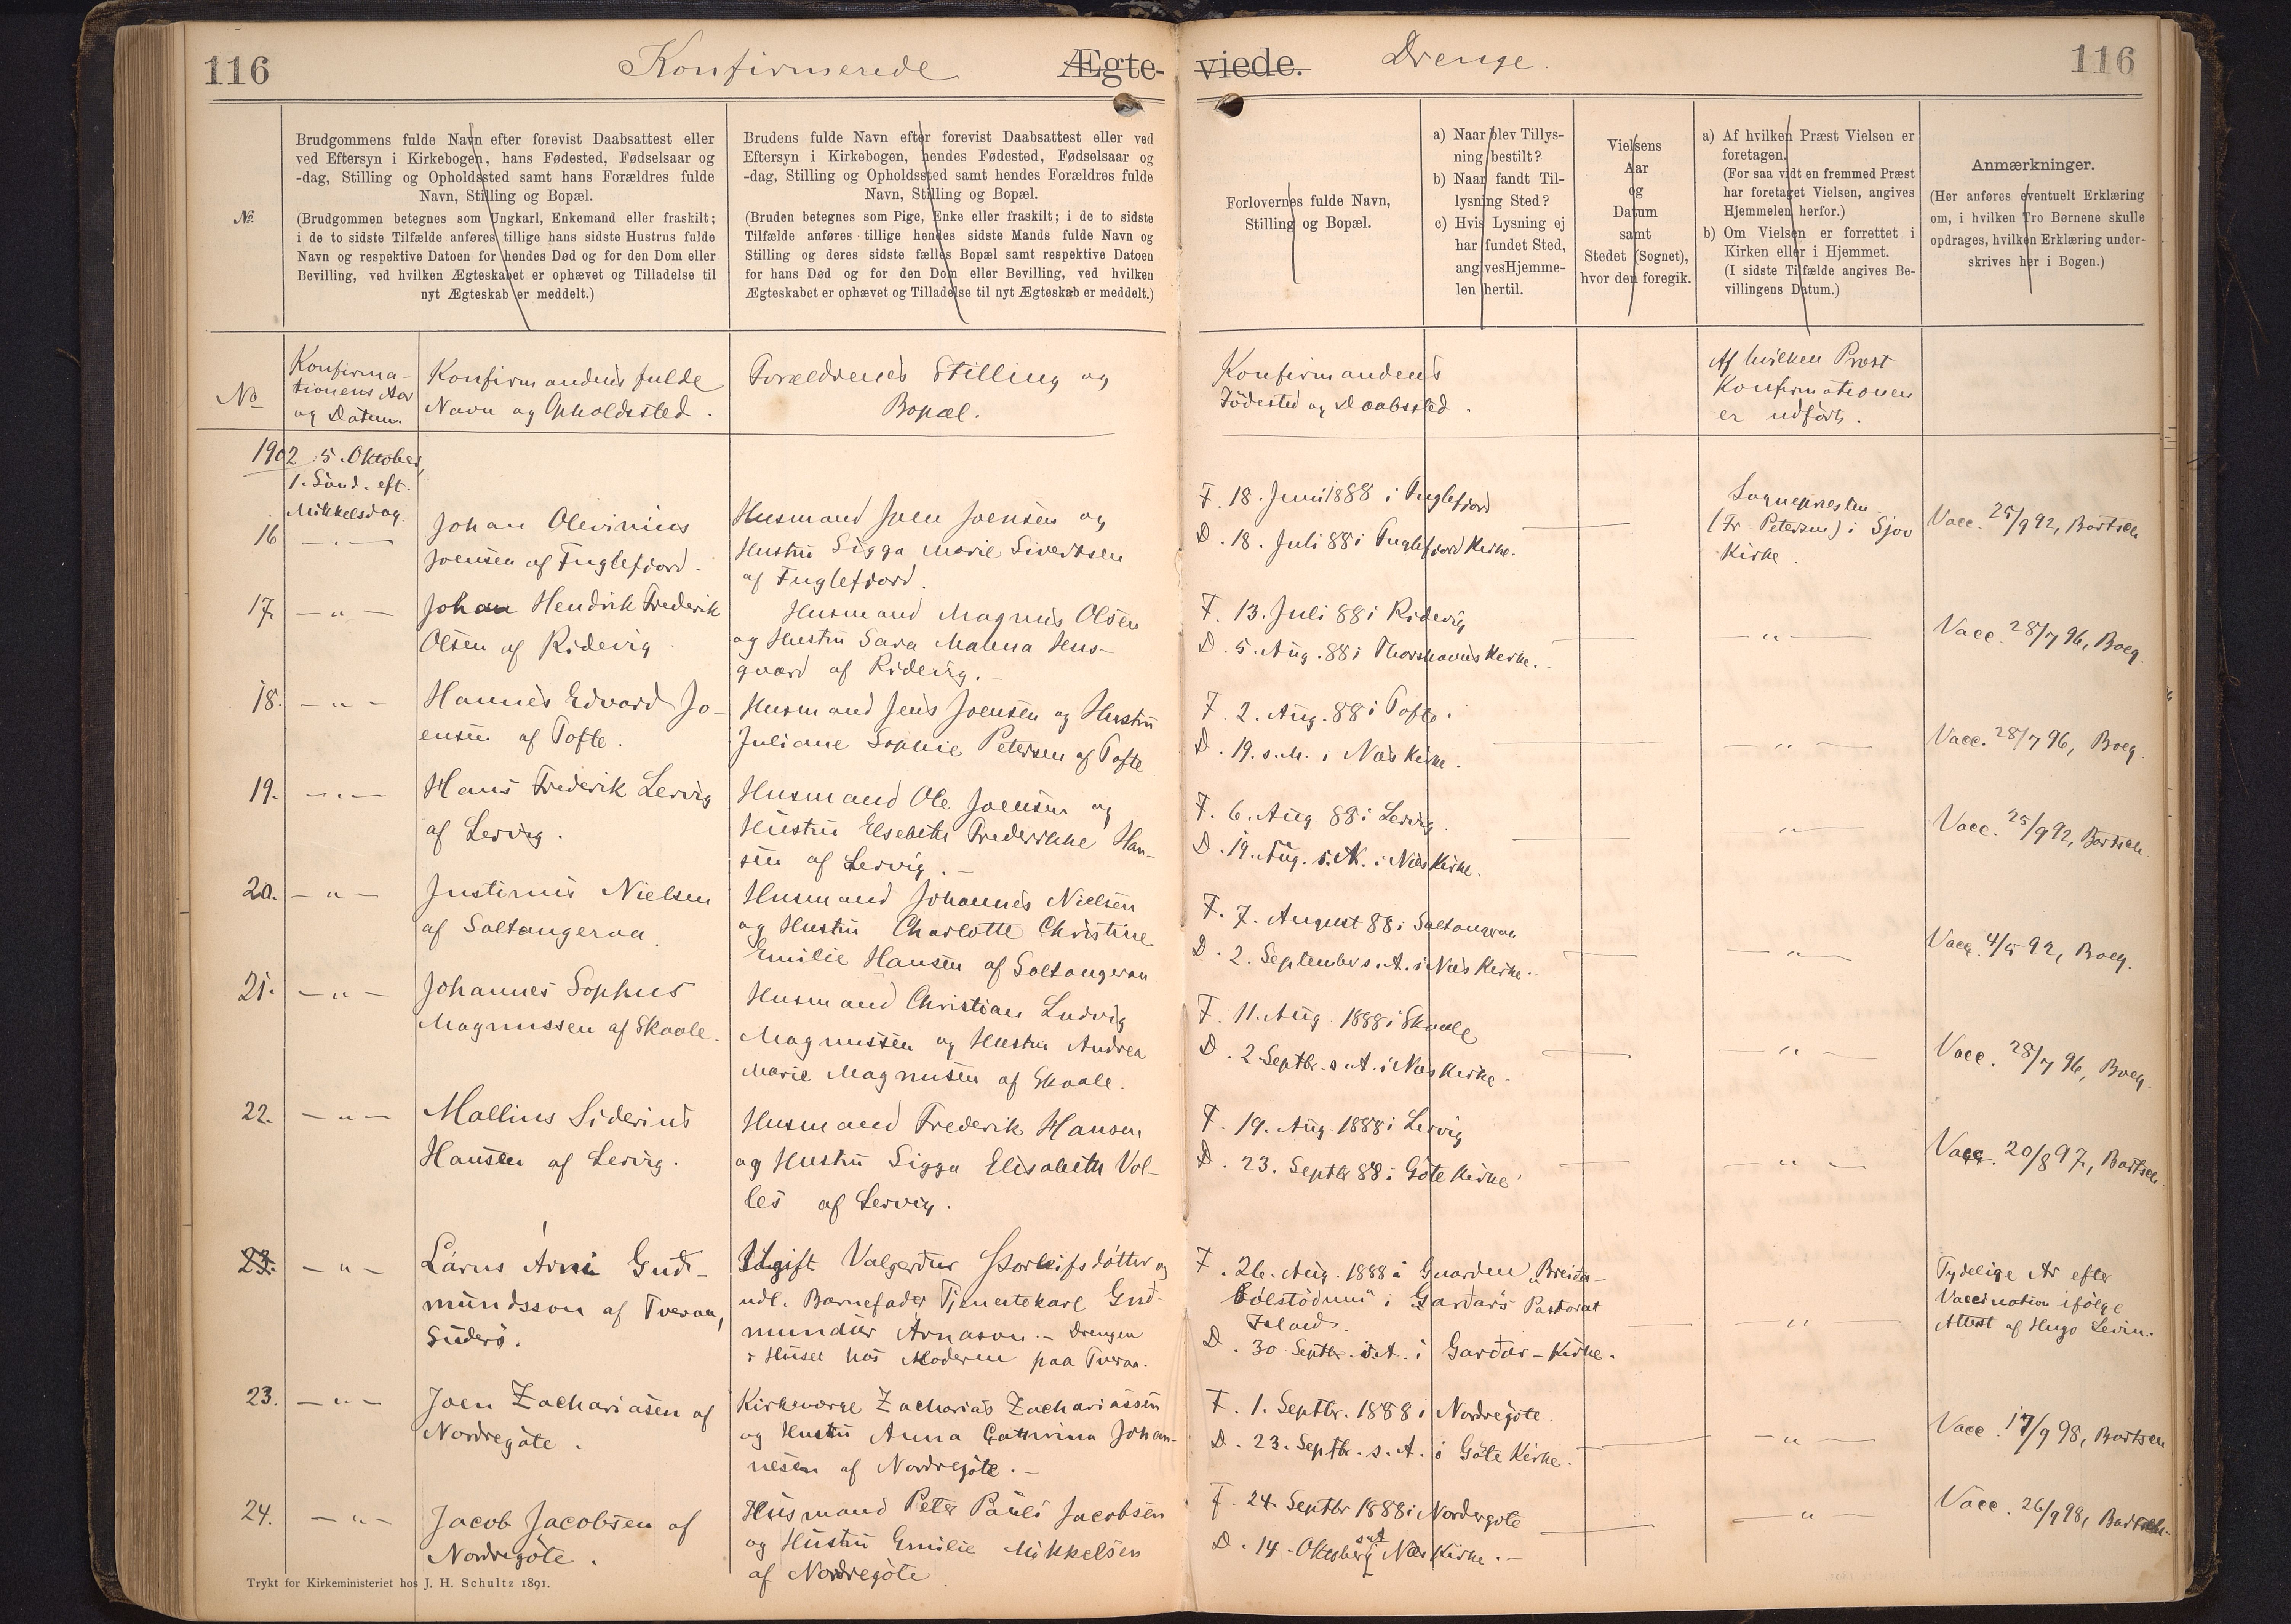 116
Konfirmerede
Ægte-
viede.
Drenge.
116
№.
Brudgommens fulde Navn efter forevist Daabsattest eller
ved Eftersyn i Kirkebogen, hans Fødested, Fødselsaar og
-dag, Stilling og Opholdssted samt hans Forældres fulde
Navn, Stilling og Bopæl.
(Brudgommen betegnes som Ungkarl, Enkemand eller fraskilt;
i de to sidste Tilfælde anføres tillige hans sidste Hustrus fulde
Navn og respektive Datoen for hendes Død og for den Dom eller
Bevilling, ved hvilken Ægteskabet er ophævet og Tilladelse til
nyt Ægteskab er meddelt.)
Brudens fulde Navn efter forevist Daabsattest eller ved
Eftersyn i Kirkebogen, hendes Fødested, Fødselsaar og
-dag, Stilling og Opholdssted samt hendes Forældres fulde
Navn, Stilling og Bopæl.
(Bruden betegnes som Pige, Enke eller fraskilt; i de to sidste
Tilfælde anføres tillige hendes sidste Mands fulde Navn og
Stilling og deres sidste fælles Bopæl samt respektive Datoen
for hans Død og for den Dom eller Bevilling, ved hvilken
Ægteskabet er ophævet og Tilladelse til nyt Ægteskab er meddelt.)
Forlovernes fulde Navn,
Stilling og Bopæl.
a) Naar blev Tillys-
ning bestilt?
b) Naar fandt Til-
lysning Sted?
c) Hvis Lysning ej
har fundet Sted,
angives Hjemme-
len hertil.
Vielsens
Aar
og
Datum
samt
Stedet (Sognet),
hvor den foregik.
a) Af hvilken Præst Vielsen er
foretagen.
(For saa vidt en fremmed Præst
har foretaget Vielsen, angives
Hjemmelen herfor.)
b) Om Vielsen er forrettet i
Kirken eller i Hjemmet.
(I sidste Tilfælde angives Be-
villingens Datum.)
Anmærkninger.
(Her anføres eventuelt Erklæring
om, i hvilken Tro Børnene skulle
opdrages, hvilken Erklæring under-
skrives her i Bogen.)
No
Konfirma-
tionens Aar
og Datum.
Konfirmandens fulde
Navn og Opholdssted.
Forældrenes Stilling og
Bopæl.
Konfirmandens
Födested og Daabssted.
Af hvilken Præst
Konfirmationen
er udført.
1902 5. Oktober,
1. Sönd. eft.
Mikkelsdag.
16 — " —
Johan Olevinius
Joensen af Fuglefjord.
Husmand Joen Joensen og
Hustru Sigga Marie Sivertsen
af Fuglefjord.
F. 18. Juni 1888 i Fuglefjord
D. 18. Juli 88 i Fuglefjord Kirke.
Sognepræsten
(Fr. Petersen) i Sjov
Kirke.
Vacc. 25/9 92, Bartsch
17. — " —
Johan Hendrik Frederik
Olsen af Ridevig
Husmand Magnus Olsen
og Hustru Sara Malena Hus-
gaard af Ridevig. —
F. 13. Juli 88 i Ridevig
D. 5. Aug. 88 i Thorshavns Kirke. —
— " —
Vacc. 28/7 96, Boeg.
18. — " —
Hannes Edvard Jo-
ensen af Tofte.
Husmand Jens Joensen og Hustru
Juliane Sophie Petersen af Tofte
F. 2. Aug. 88 i Tofte.
D. 19. s. M. i Næs Kirke.
— " —
Vacc. 28/7 96, Boeg.
19. — " —
Hans Frederik Lervig
af Lervig.
Husmand Ole Joensen og
Hustru Elsebeth Frederikke Han-
sen af Lervig. —
F. 6. Aug. 88 i Lervig.
D. 19. Aug. s. A. i Næs Kirke.
— " —
Vacc. 25/9 92, Bartsch
20. — " —
Justinus Nielsen
af Saltangeraa.
Husmand Johannes Nielsen
og Hustru Charlotte Christine
Emilie Hansen af Saltangeraa
F. 7. August 88 i Saltangeraa
D. 2. September s. A. i Næs Kirke.
— " —
Vacc. 4/5 92, Boeg.
21. — " —
Johannes Sophus
Magnussen af Skaale.
Husmand Christian Ludvig
Magnussen og Hustru Andrea
Marie Magnusen af Skaale.
F. 11. Aug. 1888 i Skaale
D. 2. Septbr. s. A. i Næs Kirke.
— " —
Vacc. 28/7 96, Boeg.
22. — " —
Mallius Siderius
Hansen af Lervig.
Husmand Frederik Hansen
og Hustru Sigga Elisabeth Vol-
les af Lervig.
F. 19. Aug. 1888 i Lervig
D. 23. Septbr 88 i Göte Kirke
— " —
Vacc. 20/8 97, Bartsch.
23. — " —
Lárus Árni Gud-
mundsson af Tveraa,
Suderö.
Ugift Valgerdur Þorleifsdóttir og
udl. Barnefader Tjenestekarl Gud-
mundur Árnason. — Drengen
i Huset hos Moderen paa Tveraa.
F. 26. Aug. 1888 á Gaarden „Breida-
bólstödum" i Gardar's Pastorat
Island.
D. 30. Septbr. s. A. i Gardar-Kirke.
— " —
Tydelige Ar efter
Vaccination ifölge
Attest af Hugo Levin.
23. — " —
Joen Zachariasen af
Nordregöte.
Kirkeværge Zacharias Zachariassen
og Hustru Anna Cathrina Johan-
nesen af Nordregöte. —
F. 1. Septbr. 1888 i Nordregöte.
D. 23. Septbr. s. A. i Göte Kirke.
— " —
Vacc. 17/9 98, Bartsch
24. — " —
Jacob Jacobsen af
Nordregöte.
Husmand Peter Pauli Jacobsen
og Hustru Emilie Mikkelsen
af Nordregöte
F. 24. Septbr 1888 i Nordergote
D. 14. Oktober s.A. i Næs Kirke. —
— " —
Vacc. 26/9 98, Bartsch.
Trykt for Kirkeministeriet hos J. H. Schultz 1891.